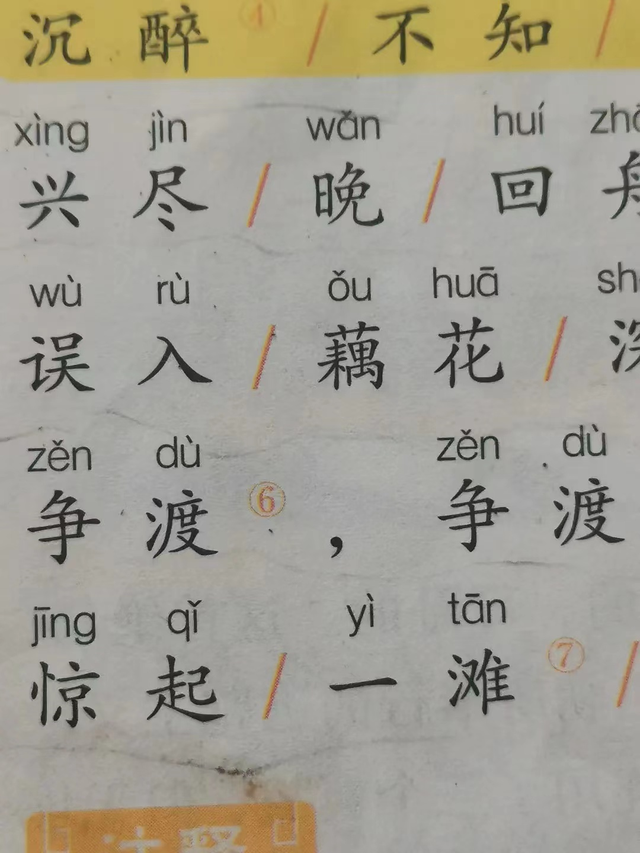 沉醉④/不知/
xìng jìn wǎn huí
兴尽/晚/回
wù rù ǒu huā
误入/藕花/
zěn dù zěn dù
争渡⑥，争渡
jīng qǐ yì tān
惊起/一滩⑦/